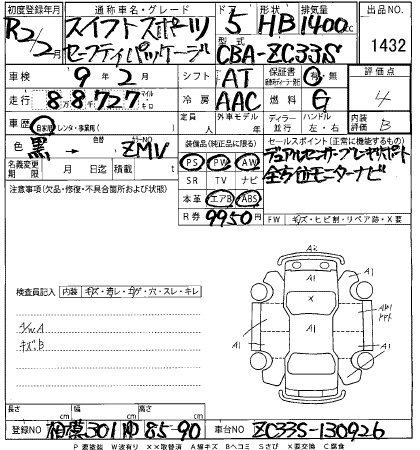 初度登録年月 通称車名・グレード ドア 形状 排気量 出品NO.
R2/2月 スイフトスポーツ セーフティパッケージ 5 HB 1400cc 1432
型式 CBA-ZC33S
車検 9年2月 シフト AT 保証書 有・無 評価点 4
走行 88727 マイル キロ 冷房 AAC 燃料 G 内装評価 B
車歴 自家用・レンタ・事業用( ) 定員 人 外車モデル 年 ディーラー・並行 ハンドル 左・右
色 黒 色替 カラーNO ZMV
装備品(純正品に限る)
PS PW AW
SR TV ナビ
本革 エアB ABS
セールスポイント(正常に機能するもの)
デュアルセンサーブレーキサポート
全方位モニターナビ
名義変更期限 月 日迄 積載 t
R券 9950円
注意事項(欠品・修復・不具合箇所および状態)
FW キズ・ヒビ割・リペア跡・X要
検査員記入 内装 キズ・汚レ・コゲ・穴・スレ・キレ
キズ.B
A2
A1
A1
A1
X
A1
A1
長さ cm 幅 cm 高さ cm
登録NO 相模301 85-90 車台NO ZC33S-130926
P 要塗装 W波有り ××取替済 A線キズ Bヘコミ Sさび X要交換 C腐食